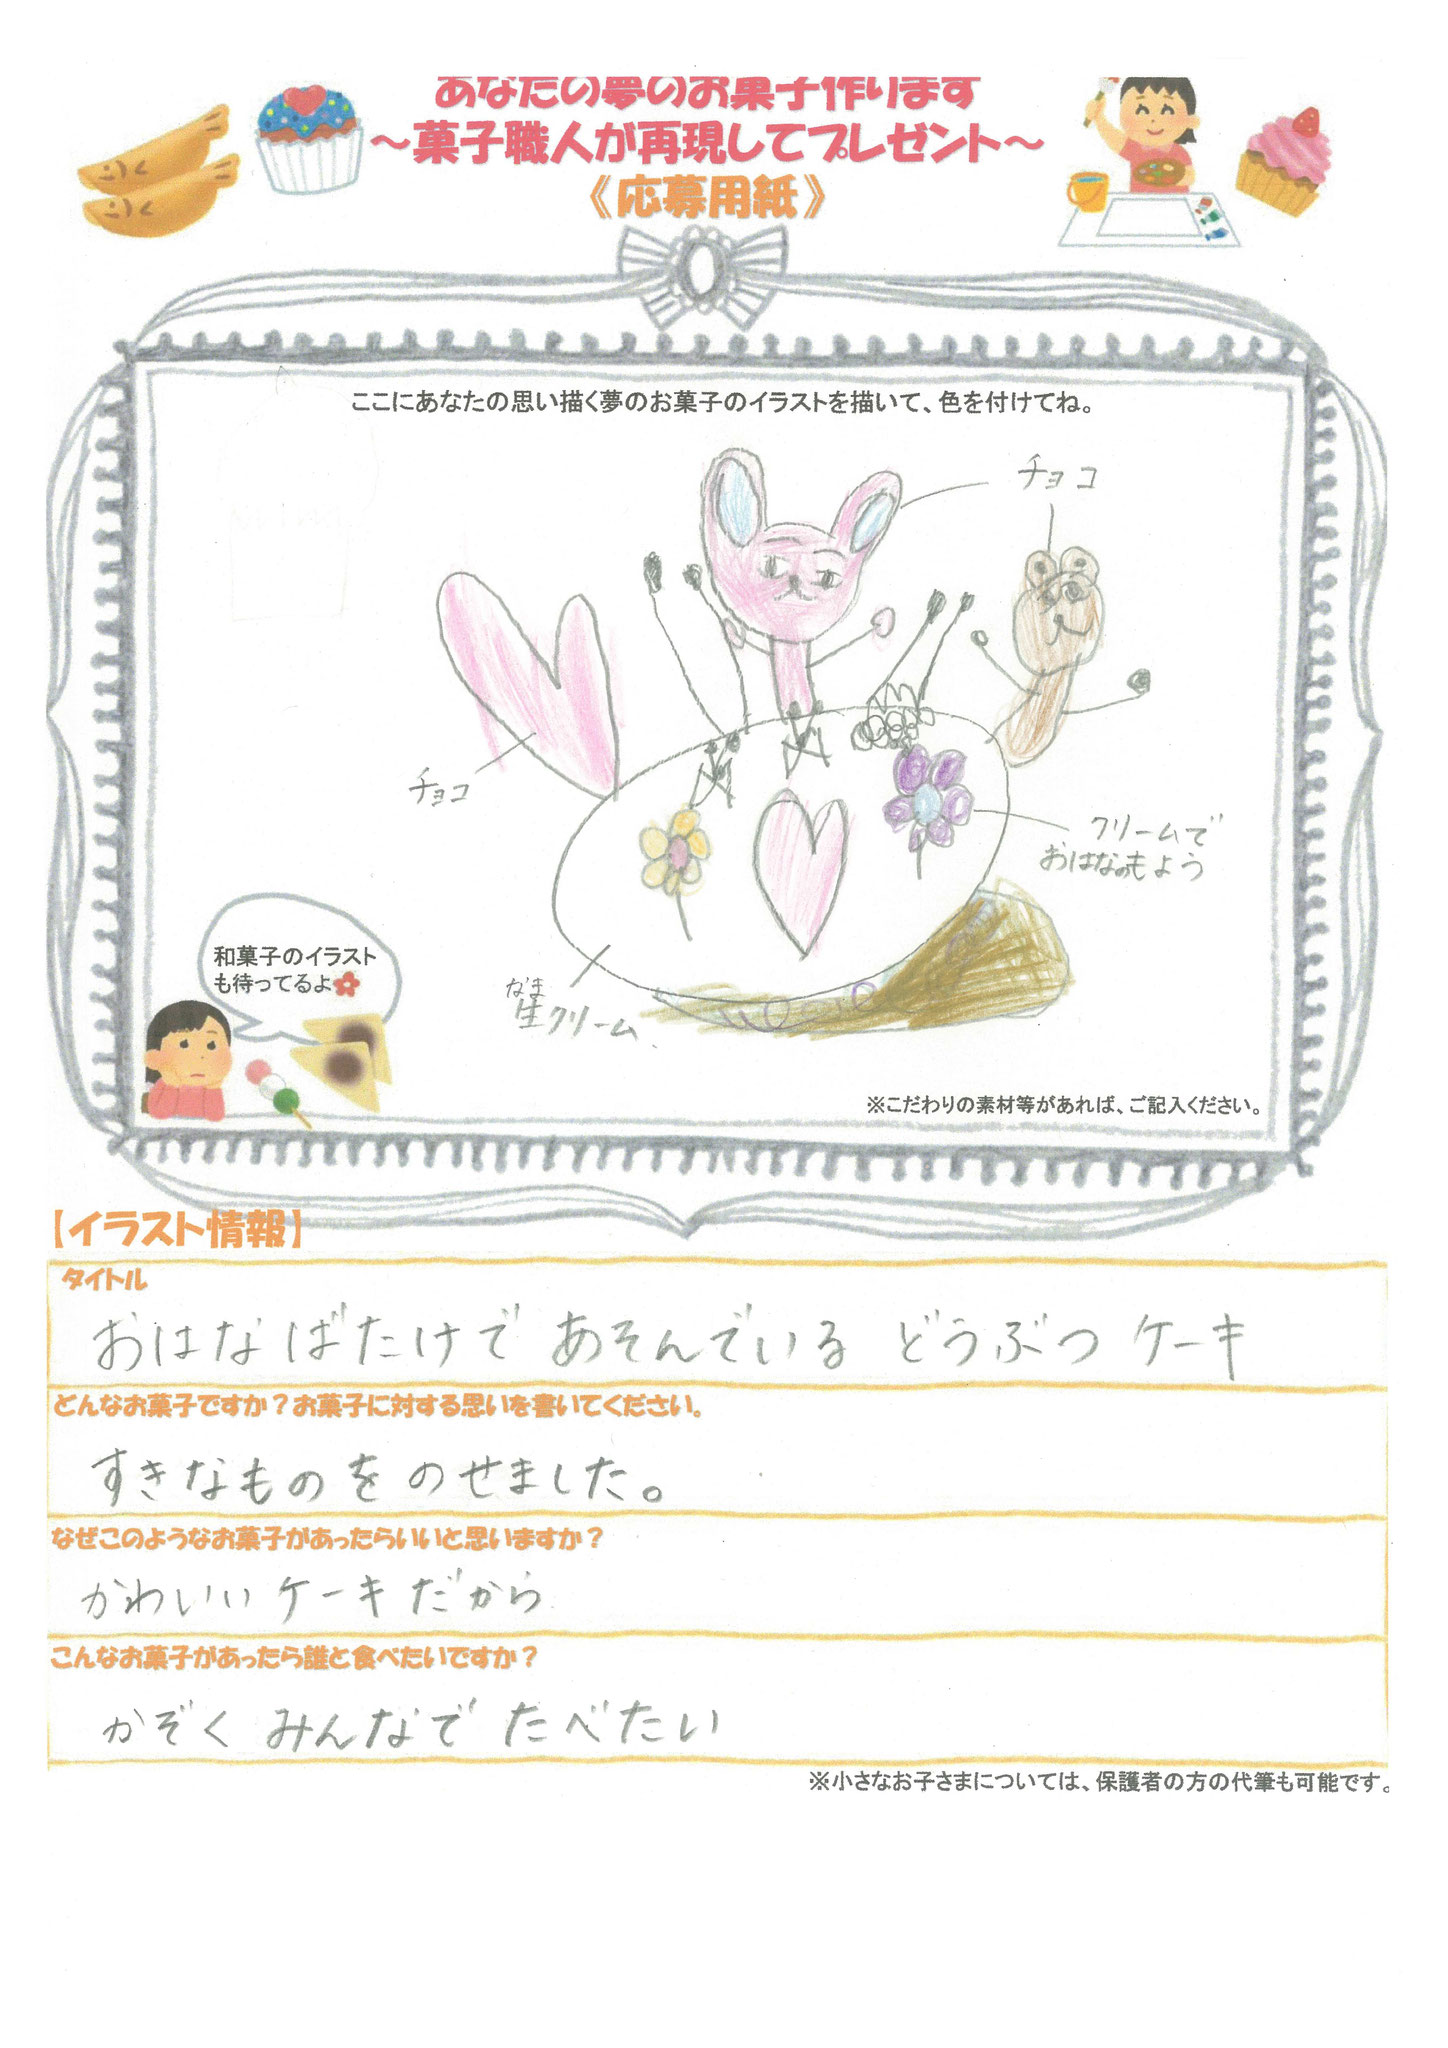 あなたの夢のお菓子作ります
～菓子職人が再現してプレゼント～
《応募用紙》
ここにあなたの思い描く夢のお菓子のイラストを描いて、色を付けてね。
チョコ
チョコ
クリームで
おはなのもよう
和菓子のイラスト
も待ってるよ
なま
生クリーム
※こだわりの素材等があれば、ご記入ください。
【イラスト情報】
タイトル
おはなばたけで あそんでいる どうぶつ ケーキ
どんなお菓子ですか？お菓子に対する思いを書いてください。
すきなものを のせました。
なぜこのようなお菓子があったらいいと思いますか？
かわいい ケーキ だから
こんなお菓子があったら誰と食べたいですか？
かぞく みんなで たべたい
※小さなお子さまについては、保護者の方の代筆も可能です。